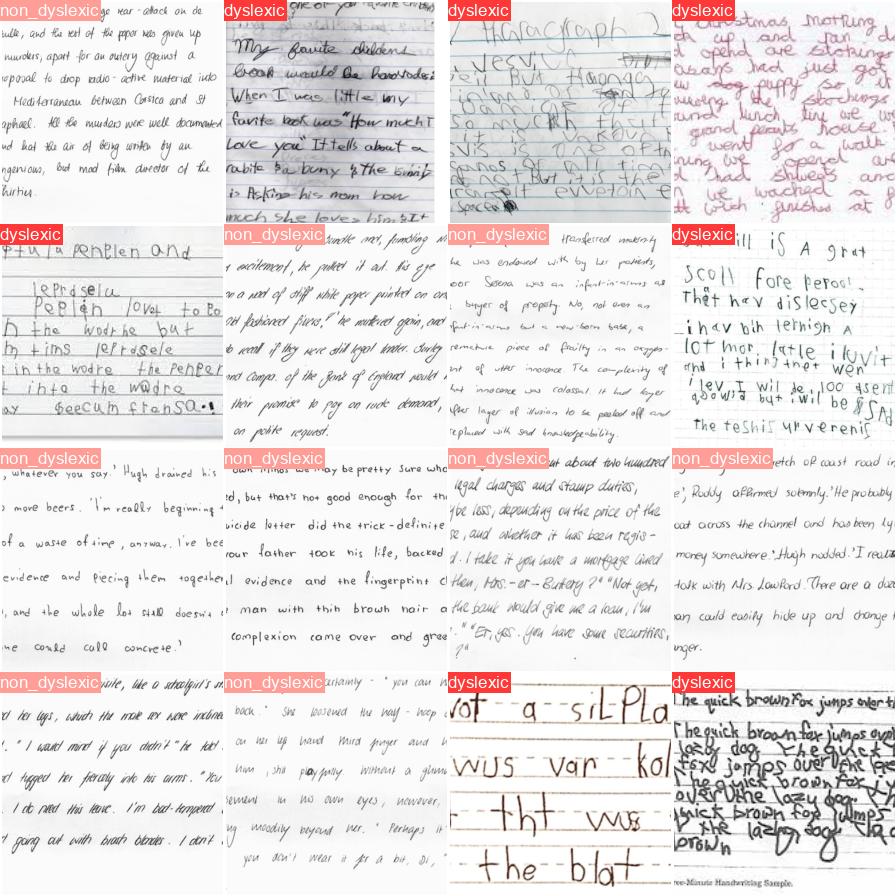 non_dyslexic
ge rear-attack on de
ulle, and the rest of the paper was given up
murders, apart for an outcry against a
oposal to drop radio-active material into
Mediterranean between Corsica and St
aphael. All the murders were well documented
nd had the air of being written by an
ngenious, but mad film director of the
hirties.
dyslexic
one of your favorite children
My favite childens
book would be
When I was little my
favite book was "How much I
love you" It tells about a
rabite & a buny & the
is Asking his mom how
much she loves him & It
dyslexic
Paragraph 2
vesviu
But
island of
so much
is one of
of all time
But it is the
dyslexic
Christmas morning
ch up and ran d
opend are stockings
had just got
ew dog puppy so it
the stockings
round lunch time we w
grand perants house
went for a walk
ning we opend are
had shweats and
n we wached a
it witch finushes at
dyslexic
and
leprdselu
Peplen lovet to Eo
h the wodrhe but
m tims leprdsele
in the wodre the penpen
t into the wodre
ay beecum fransa..!
non_dyslexic
bundle and, fumbling w
r excitement, he pulled it out. His eye
n a wad of stiff white paper printed on one
old fashioned fivers!" he muttered again, and
to recall if they were still legal tender. Surely
and Compa. of the Bank of England would
their promise to pay on rude demand,
on polite request.
non_dyslexic
transferred maternity
he was endowed with by her patients,
oor Seena was an infant-in-arms as
buyer of property. No, not even an
fant-in-arms but a new-born babe, a
remature piece of frailty in an oxygen-
nt of utter innocence. The complexity of
hat innocence was colossal. It had layer
fter layer of illusion to be peeled off and
replaced with sad knowledgeability.
dyslexic
ill is A grat
scoll fore perosl.
that hav dislecsey
i hav bin ternign A
lot mor latle i luvit
and i thing thet wen
i lev I wil be 100 %sent
but i wil be SAD
the teshis ur verenis
non_dyslexic
, whatever you say.' Hugh drained his
o more beers. 'I'm really beginning t
of a waste of time, anyway. I've bee
evidence and piecing them together
, and the whole lot still doesn't
we could call concrete.'
non_dyslexic
own minds we may be pretty sure who
ed, but that's not good enough for the
uicide letter did the trick-definite
your father took his life, backed
l evidence and the fingerprint c
man with thin brown hair a
complexion came over and gree
non_dyslexic
out about two hundred
legal charges and stamp duties,
ybe less, depending on the price of the
se, and whether it has been regis-
d. I take it you have a mortgage lined
then, Mrs.-er-Buttery?" "Not yet,
the bank would give me a loan, I'm
." "Er, yes. You have some securities,
?"
non_dyslexic
etch of coast road in
e', Roddy affirmed solemnly. 'He probably
oat across the channel and has been ly
money somewhere.' Hugh nodded. 'I realis
talk with Mrs. Lawford. There are a doz
an could easily hide up and change h
anger.
non_dyslexic
usite, like a schoolgirl's sm
d her legs, which the male sex were inclined
. "I would mind if you didn't" he told
d tugged her fiercely into his arms. "You
I do need this leave. I'm bad-tempered
t going out with brash blondes. I don't
non_dyslexic
certainly - "you can h
back." She loosened the half-hoop o
on her left hand third finger and h
him, still playfully without a glim
sement in his own eyes, however,
ng moodily beyond her. "Perhaps it
you don't wear it for a bit. Di,"
dyslexic
vot a siLPLa
wus var kol
tht wus
the blat
dyslexic
The quick brown fox jumps over th
The quick brown fox jumps over
lazy dog The quick
fox jumps over the
The quick brown fox
over the lazy dog. The
quick brown fox jumps
the lazy dog
brown
ree-Minute Handwriting Sample.